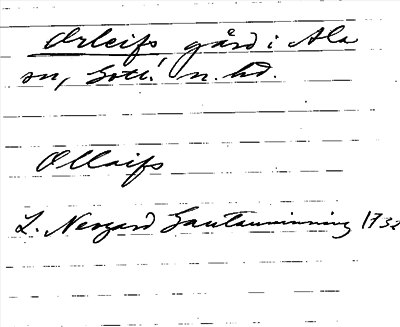 Orleifs, gård i Ala
sn, Gotl. n. hd.
Ollaifs
L. Nergard Gautauminning 1732